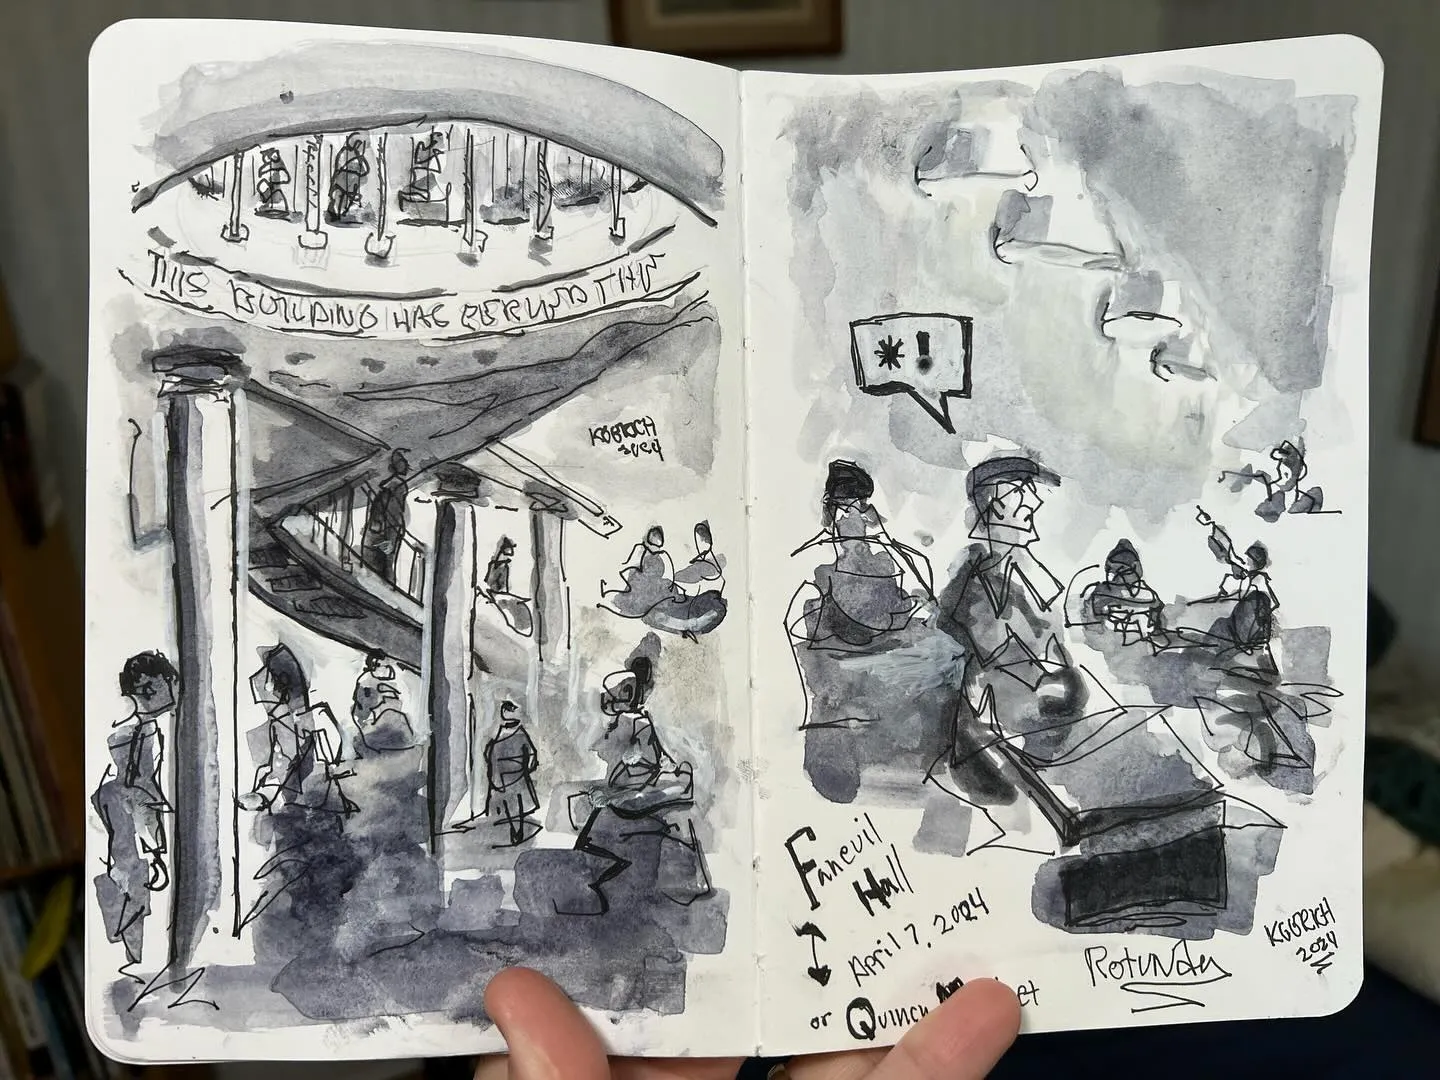 THIS BUILDING HAS
KOBRICH
2024
*!
Faneuil
Hall
April 7, 2024
or Quincy
Rotunda
KOBRICH
2024